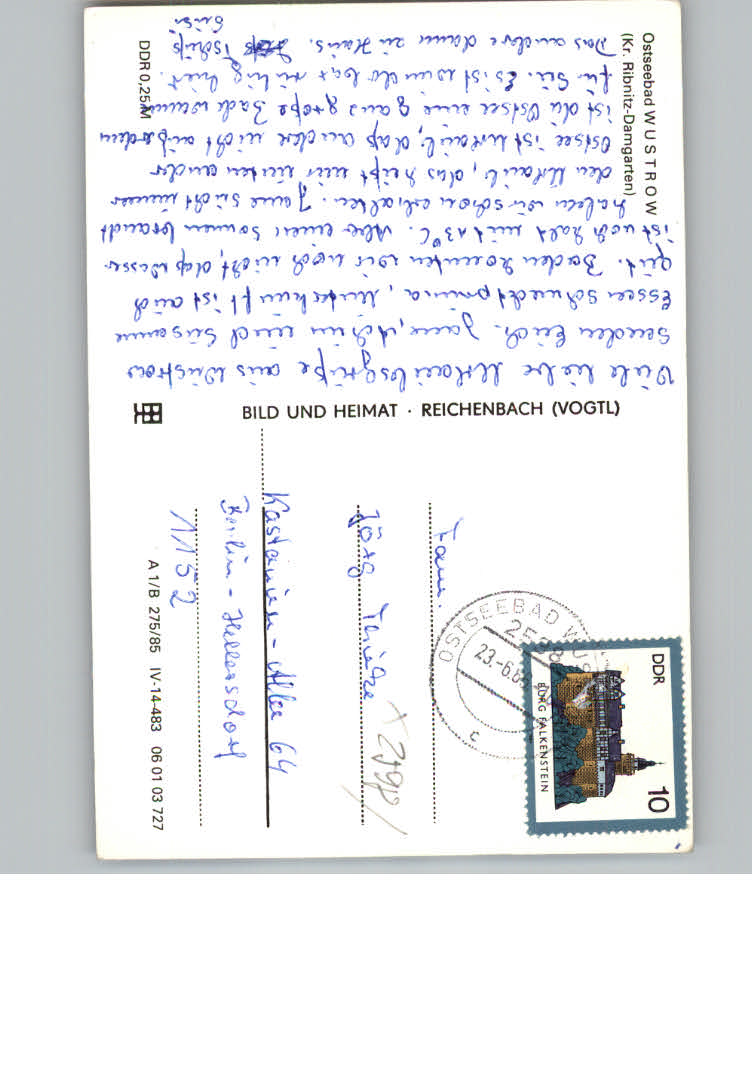 Ostseebad WUSTROW
(Kr. Ribnitz-Damgarten)
DDR 0,25 M
Viele liebe Urlaubsgrüße aus Wustrow
senden Euch Jane, Achim und Susanne
Essen schmeckt prima, Unterkunft ist auch
gut. Baden konnten wir noch nicht, das Wasser
ist noch kalt mit 13°C. Aber einen Sonnenbrand
haben wir schon erhalten. Jane sucht immer
den Urlaub, das heißt mir unter
Ostsee ist Urlaub, daß nicht außerdem
ist die Ostsee eine ganz große Badewanne
für Sie. Es ist wunderbar ruhig hier.
Das andere dann zu Haus. Tschüß
BILD UND HEIMAT · REICHENBACH (VOGTL)
Fam.
Jörg
Kastanien-Allee 64
Berlin-Hellersdorf
1152
A 1/B 275/85 IV-14-483 06 01 03 727
OSTSEEBAD WUS
2598
23.-6.
c
DDR
10
BURG FALKENSTEIN